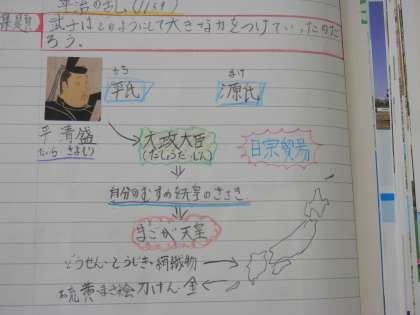 平治の乱(1159)
課題 武士はどのようにして大きな力をつけていったのだ
ろう。
かち
平氏
まけ
源氏
平 清盛
たいら きよもり
太政大臣
(だじょうだいじん)
日宋貿易
自分のむすめを天皇のきさき
まごが天皇
どうせん・とうじき・絹織物
硫黄まき絵刀けん・金